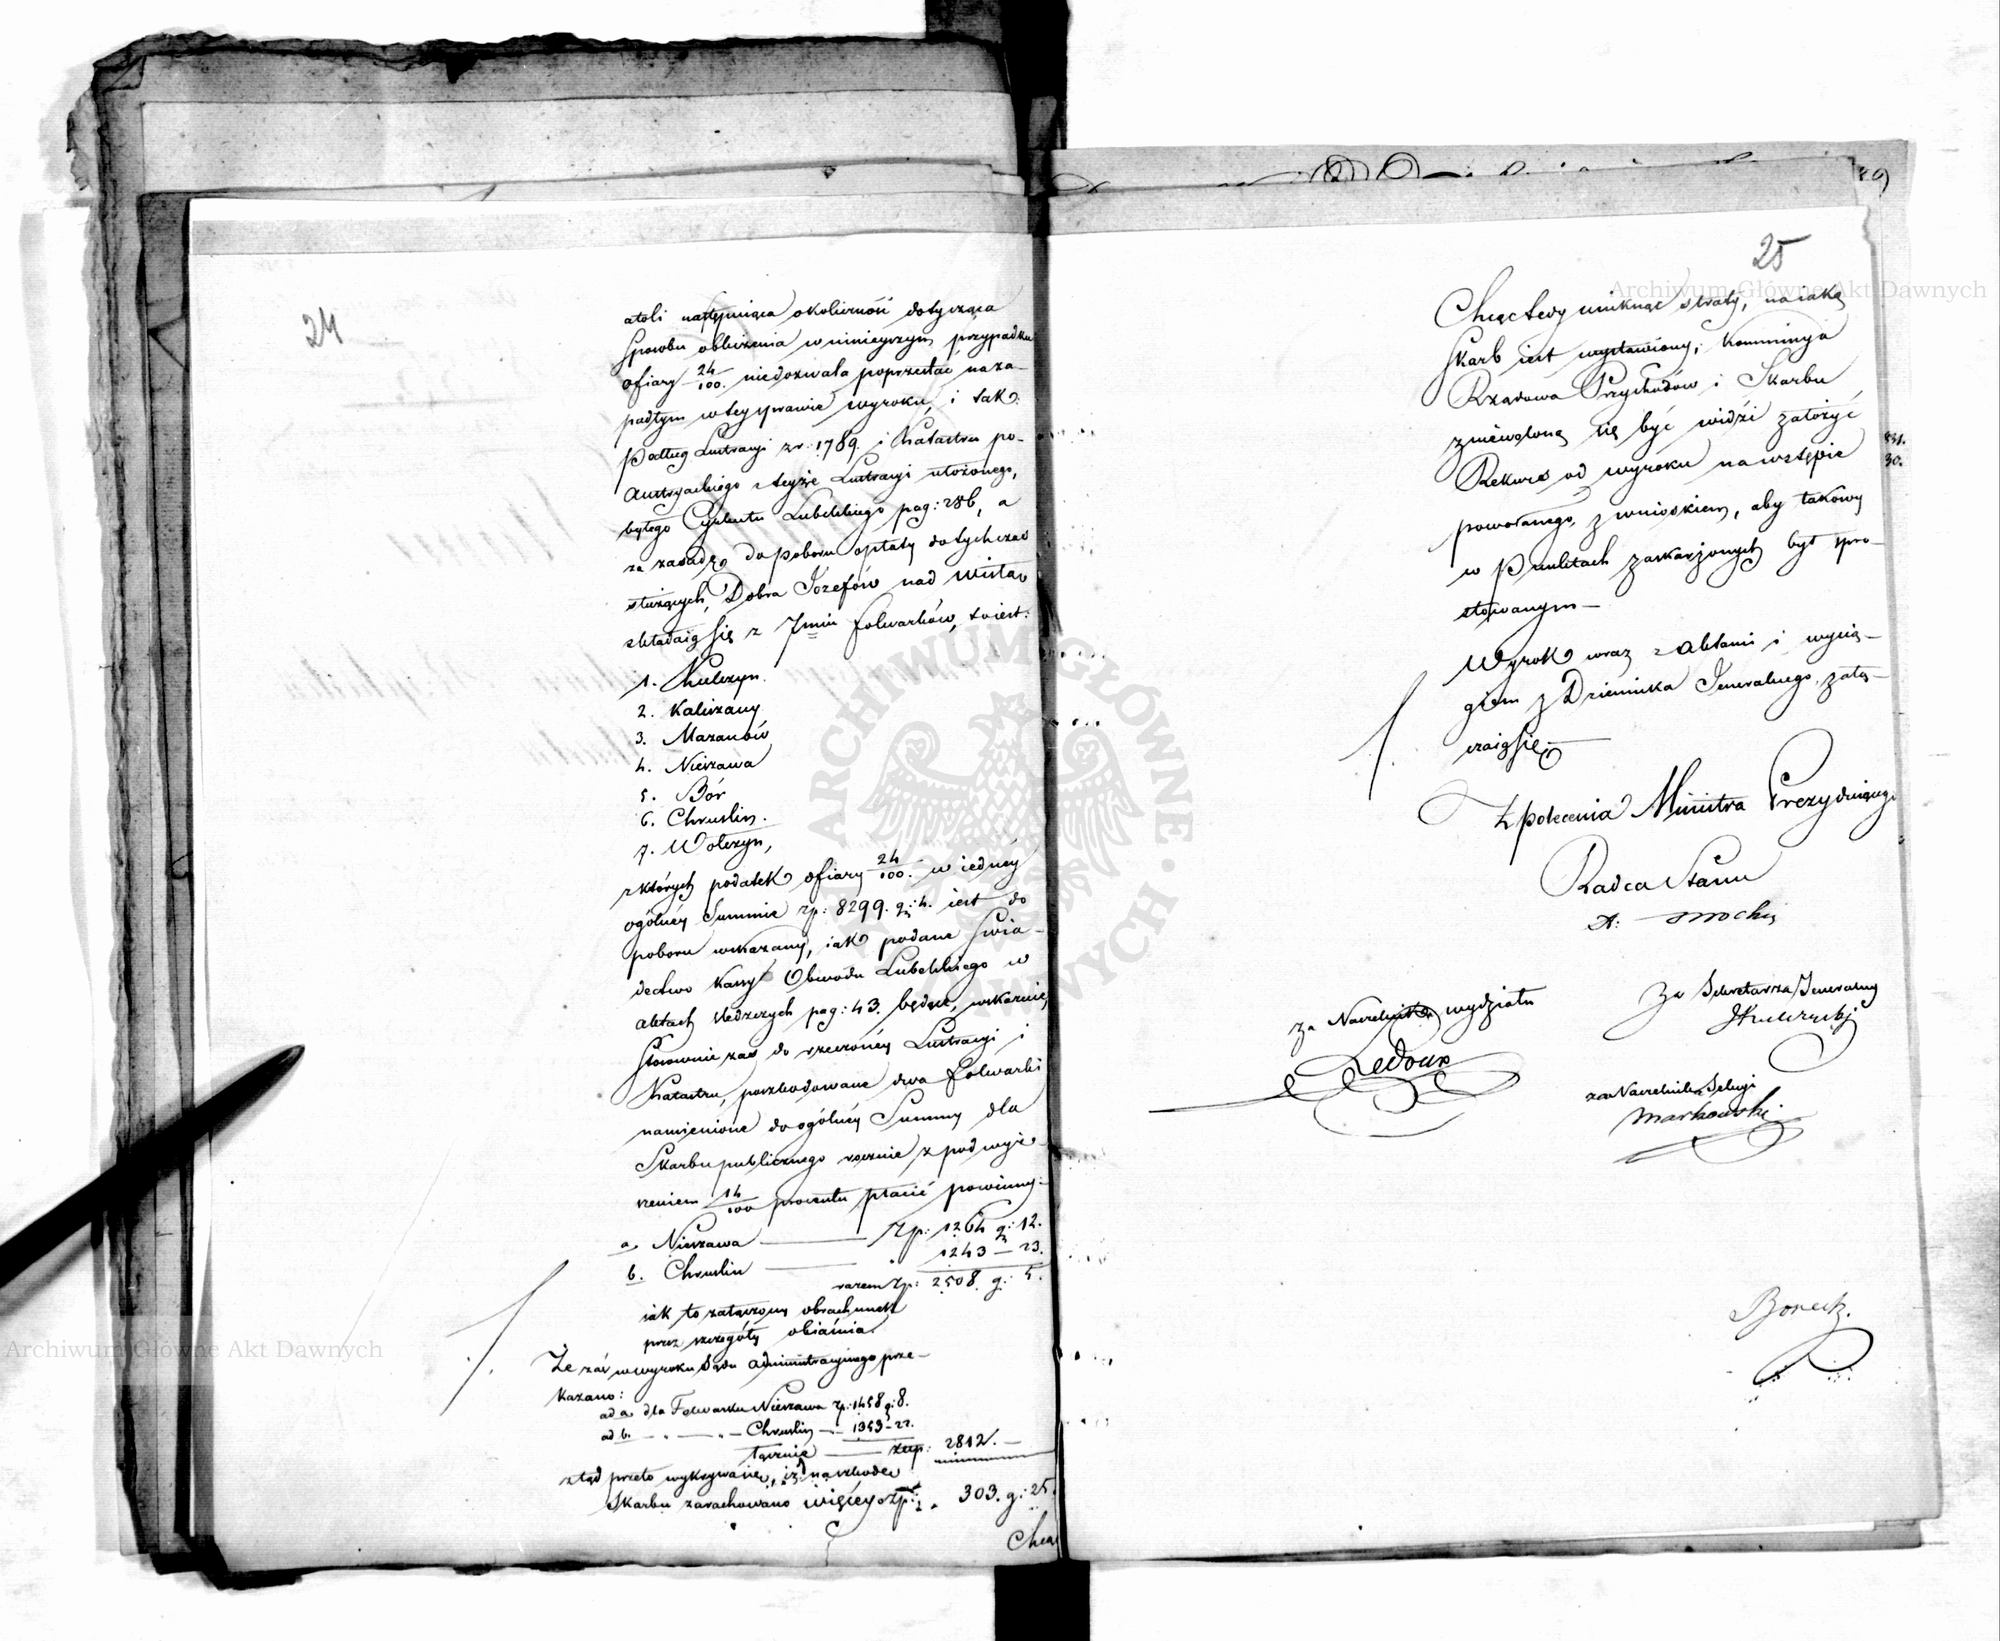 24
atoli następuiąca okoliczność dotycząca
sposobu obliczenia w ninieyszym przypadku
ofiary 24/100. niedozwala poprzestać na za-
padłym w tey sprawie wyroku, i tak:
Podług Lustracyi z r: 1789. i Katastru po-
Austryackiego z teyże Lustracyi ułożonego,
byłego Cyrkułu Lubelskiego pag: 286, a
za zasadę do poboru opłaty dotychczas
służących, Dobra Józefów nad Wisłą
składaią się z 7miu folwarków, to iest:
1. Kulczyn.
2. Kaliszany
3. Mazanów
4. Nieszawa
5. Bór
6. Chruslin.
7. Wolczyn,
z których podatek ofiary 24/100. w iedney
ogólney Summie zp: 8299. g: 4. iest do
poboru wskazany, iak podane świa-
dectwo Kassy Obwodu Lubelskiego w
aktach śledczych pag: 43. będące, wskazuie,
stosownie zaś do rzeczoney Lustracyi i
Katastru, poszkodowane dwa folwarki
namienione do ogólney Summy dla
Skarbu publicznego rocznie z podwyż-
szeniem 14/100 procentu płacić powinny:
a. Nieszawa — Zp: 1264 g: 12.
b. Chruslin — 1243 — 23.
razem Zp: 2508. g: 5.
iak to załączony obrachunek
przez szczegóły obiaśnia.
Że zaś w wyroku Sądu administracyinego prze-
kazano:
ad a. dla Folwarku Nieszawa Zp: 1458 g: 8.
ad b. — „ — „ — Chruslin — 1353 — 22.
łącznie — Złp: 2812. —
ztąd przeto wykrywa się, iż na szkodę
Skarbu zarachowano więcey Zp: 303. g: 25.
Chcąc
25
Chcąc tedy uniknąć straty, na iaką
Skarb iest wystawiony; Kommissya
Rządowa Przychodów i Skarbu
zniewoloną się być widzi założyć
Rekurs od wyroku na wstępie
powołanego, z wnioskiem, aby takowy
w punktach zaskarżonych był spro-
stowanym —
Wyrok wraz z aktami i wycią-
giem z Dziennika Jeneralnego załą-
czaią się —
Z polecenia Ministra Prezyduiącego
Radca Stanu
Za Sekretarza Jeneralny
za Naczelnika wydziału
Ledoux
za Naczelnika Sekcyi
Markowski
831.
30.
Archiwum Główne Akt Dawnych
Archiwum Główne Akt Dawnych
ARCHIWUM GŁÓWNE AKT DAWNYCH